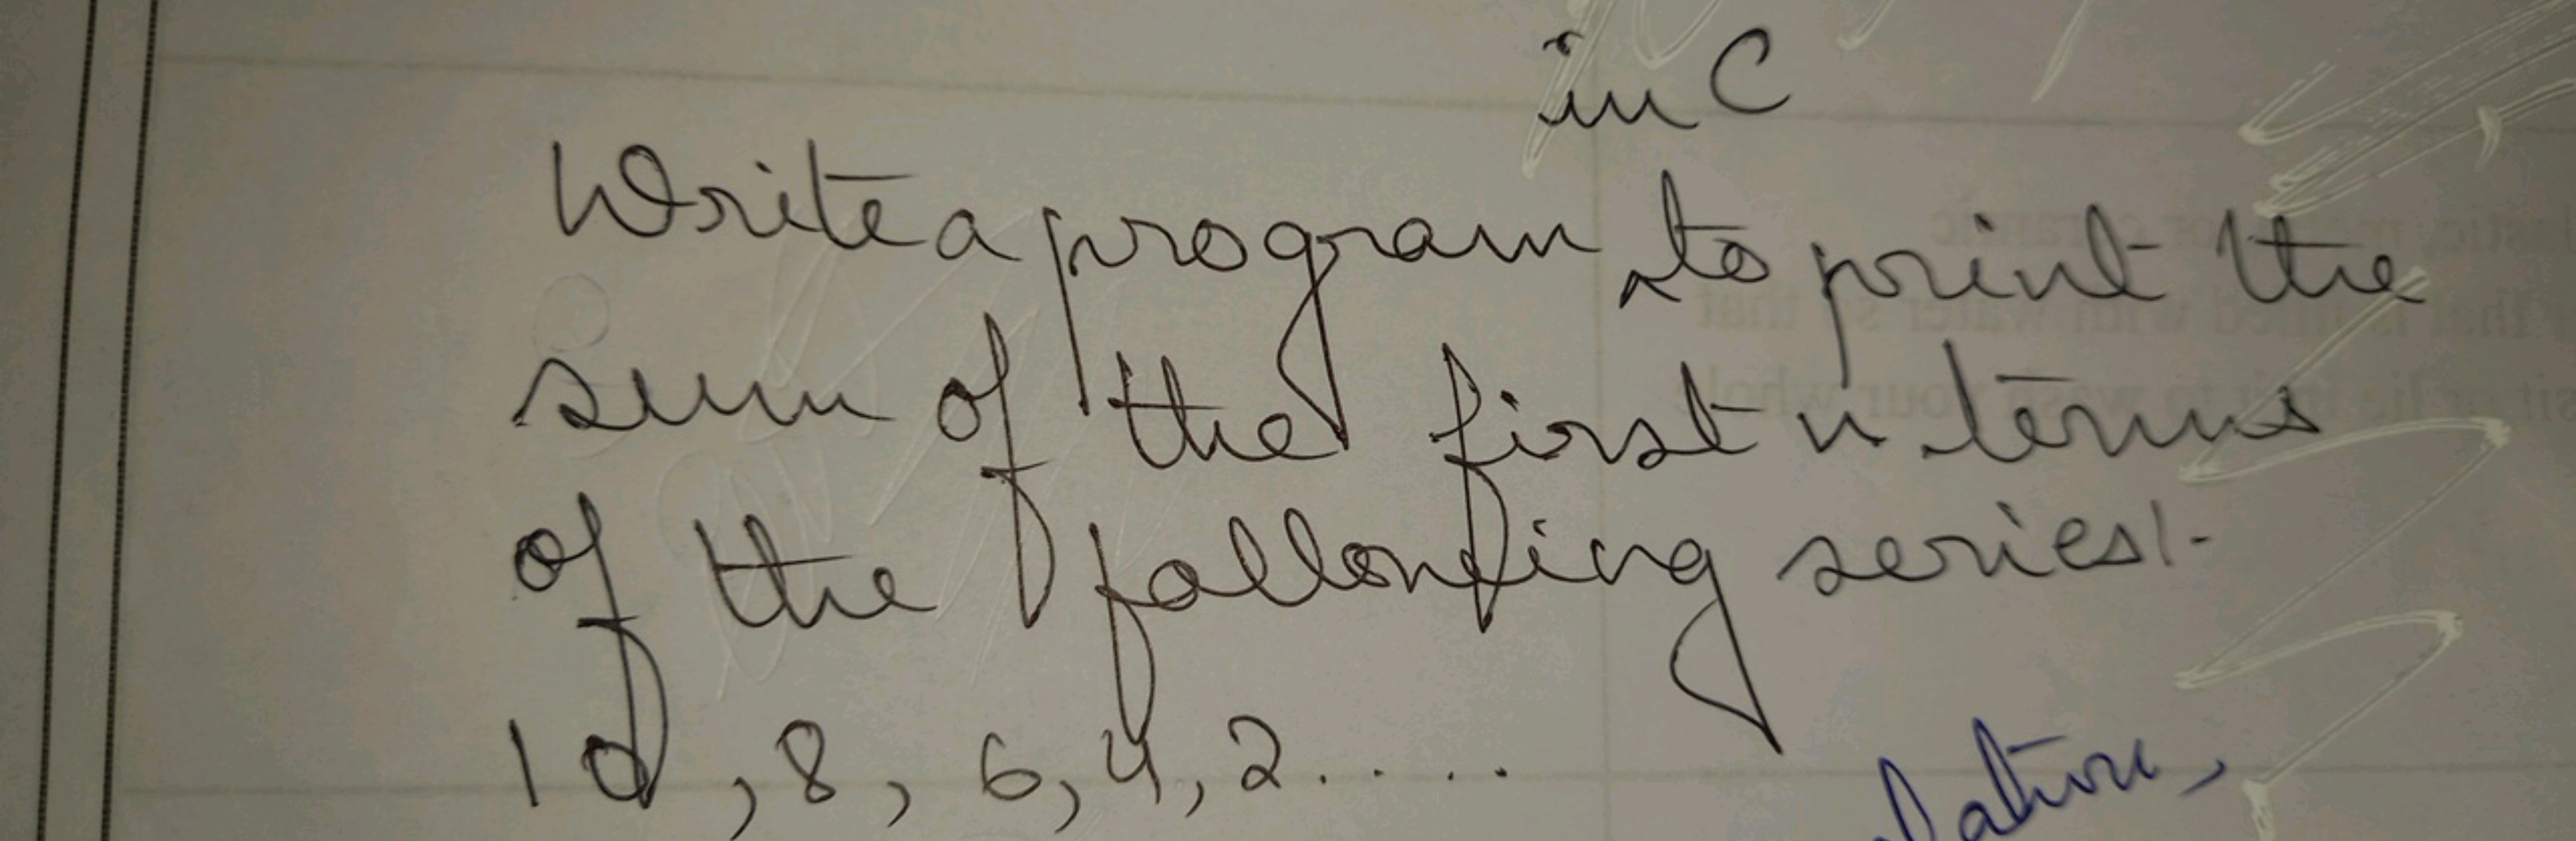 in C
Write a program to print the
sum of the first n terms
of the following series:-
10, 8, 6, 4, 2.....